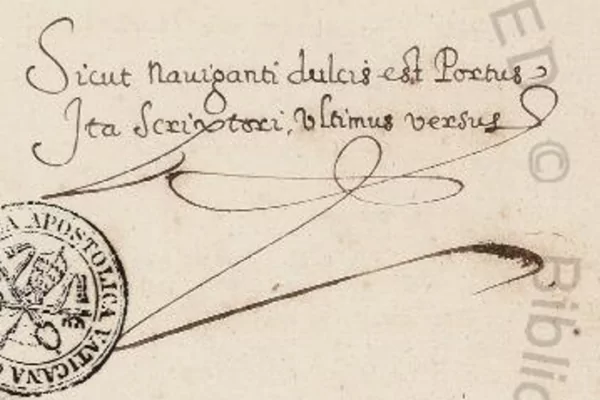 Sicut Nauiganti dulcis est Portus
Ita Scriptori, Vltimus versus
A APOSTOLICA VATICANA
ED ©
Biblio